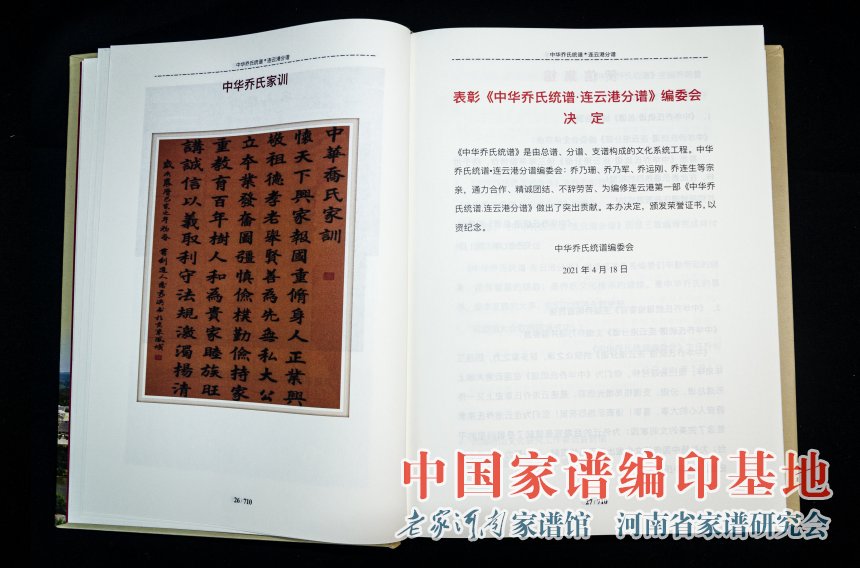 中华乔氏统谱•连云港分谱
中华乔氏家训
中華喬氏家訓
懷天下興家報國重脩身人正業興
敬祖德孝老舉賢善為先無私大公
立本業發奮圖疆慎儉樸勤儉持家
重教育百年樹人和為貴家睦族旺
講誠信以義取利守法規激濁揚清
26/710
中华乔氏统谱•连云港分谱
表彰《中华乔氏统谱·连云港分谱》编委会
决 定
《中华乔氏统谱》是由总谱、分谱、支谱构成的文化系统工程。中华
乔氏统谱•连云港分谱编委会：乔乃珊、乔乃军、乔运刚、乔连生等宗
亲，通力合作、精诚团结、不辞劳苦、为编修连云港第一部《中华乔
氏统谱.连云港分谱》做出了突出贡献。本办决定，颁发荣誉证书。以
资纪念。
中华乔氏统谱编委会
2021 年 4 月 18 日
27/710
中国家谱编印基地
老家河南家谱馆 河南省家谱研究会